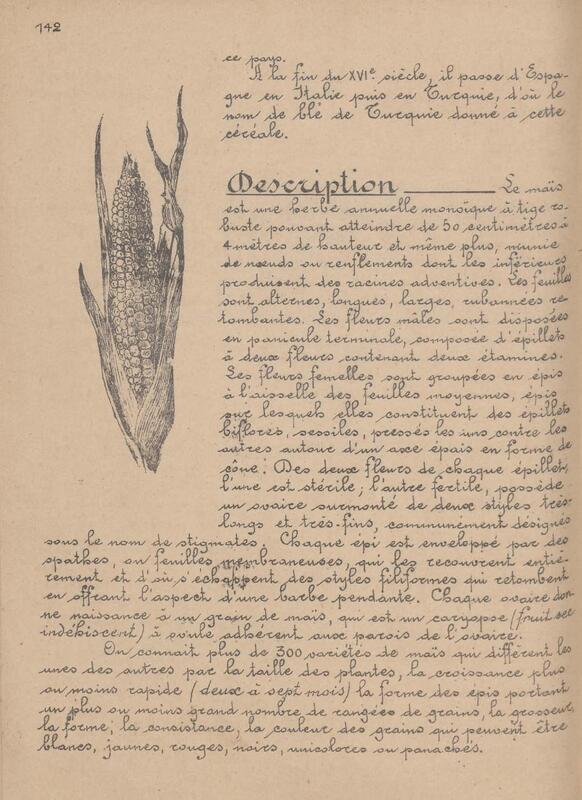 142
ce pays.
A la fin du XVIe siècle, il passe d'Espa-
gne en Italie puis en Turquie, d'où le
nom de blé de Turquie donné à cette
céréale.
Description Le maïs
est une herbe annuelle monoïque à tige ro-
buste pouvant atteindre de 50 centimètres à
4 mètres de hauteur et même plus, munie
de nœuds ou renflements dont les inférieurs
produisent des racines adventives. Les feuilles
sont alternes, longues, larges, rubannées re-
tombantes. Les fleurs mâles sont disposées
en panicule terminale, composée d'épillets
à deux fleurs contenant deux étamines.
Les fleurs femelles sont groupées en épis
à l'aisselle des feuilles moyennes, épis
sur lesquels elles constituent des épillets
biflores, sessiles, pressés les uns contre les
autres autour d'un axe épais en forme de
cône. Des deux fleurs de chaque épillet,
l'une est stérile; l'autre fertile, possède
un ovaire surmonté de deux styles très-
longs et très-fins, communément désignés
sous le nom de stigmates. Chaque épi est enveloppé par des
spathes, ou feuilles membraneuses, qui les recouvrent entiè-
rement et d'où s'échappent des styles filiformes qui retombent
en offrant l'aspect d'une barbe pendante. Chaque ovaire don-
ne naissance à un grain de maïs, qui est un caryopse (fruit sec
indéhiscent) à ovule adhérent aux parois de l'ovaire.
On connait plus de 300 variétés de maïs qui diffèrent les
unes des autres par la taille des plantes, la croissance plus
ou moins rapide (deux à sept mois) la forme des épis portant
un plus ou moins grand nombre de rangées de grains, la grosseur,
la forme, la consistance, la couleur des grains qui peuvent être
blancs, jaunes, rouges, noirs, unicolores ou panachés.